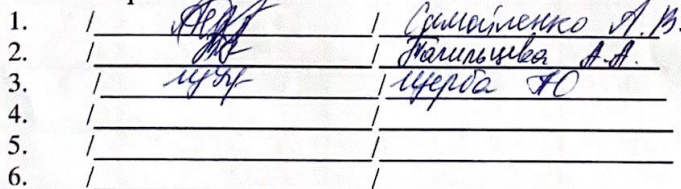 1. / / Самойленко А.В.
2. / / Тагильцева А.А.
3. / / Щерба Ю
4. / /
5. / /
6. / /